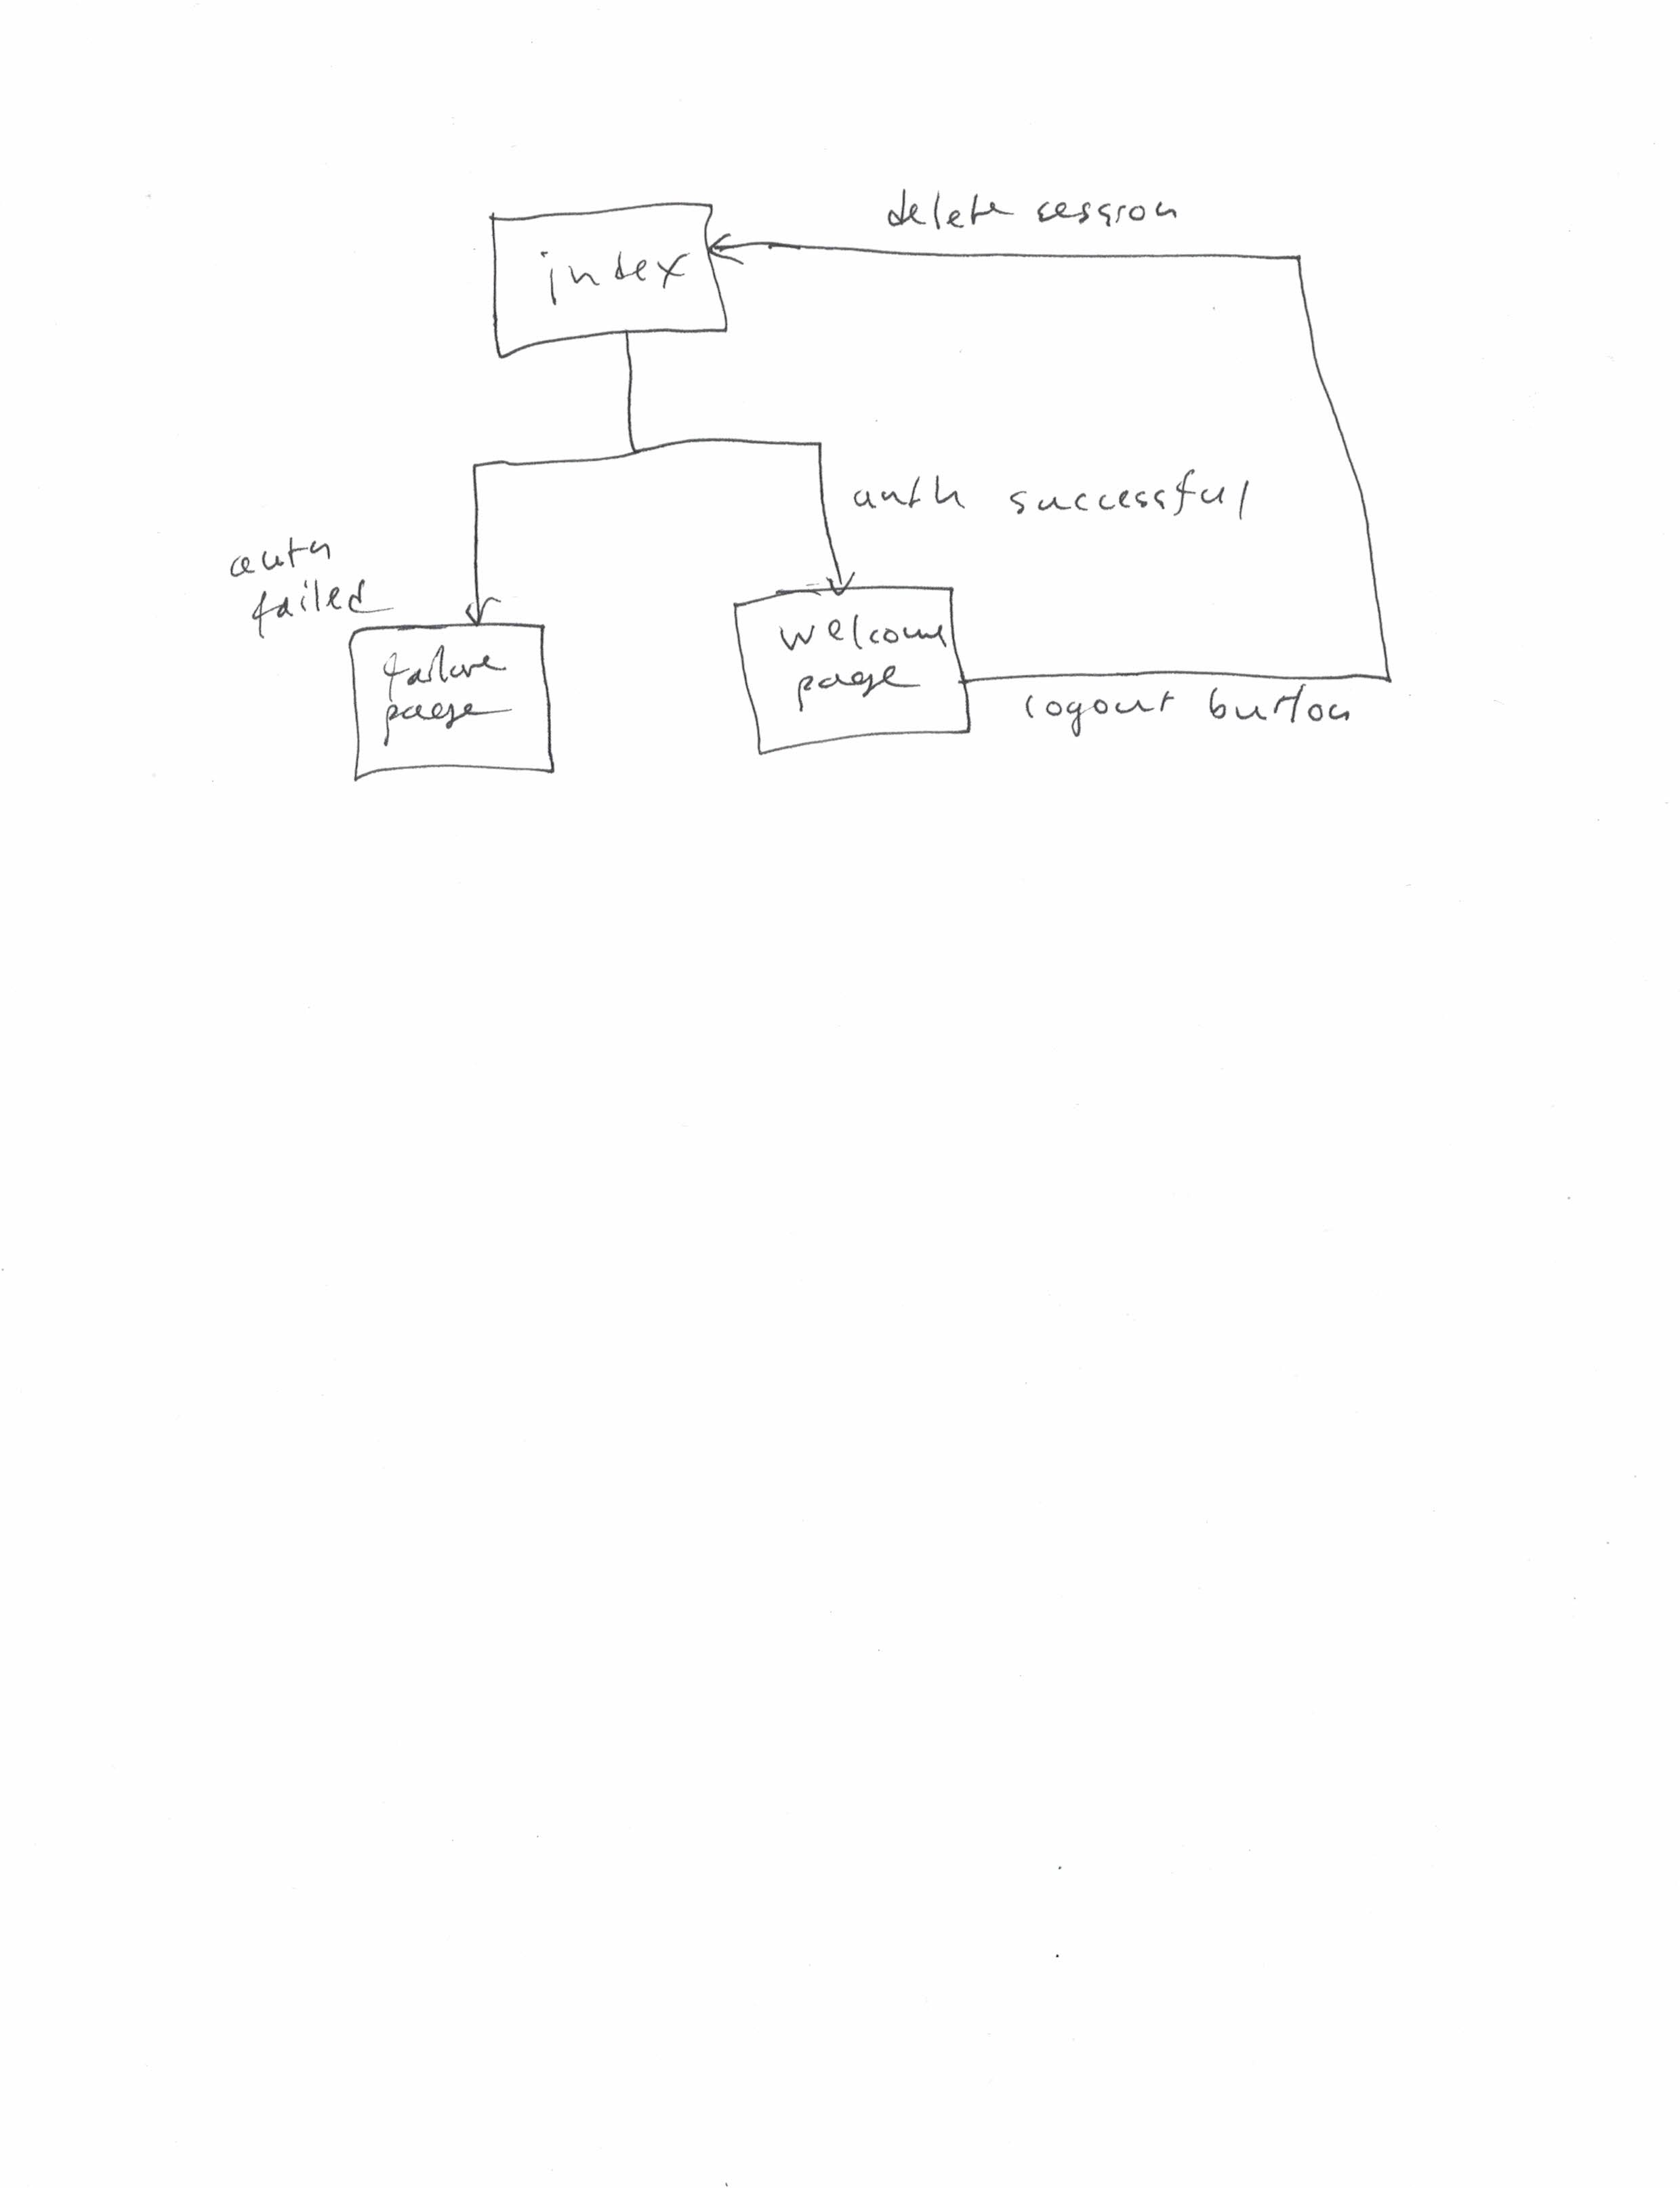 delete session
index
auth successful
auth
failed
welcome
page
failure
page
logout button